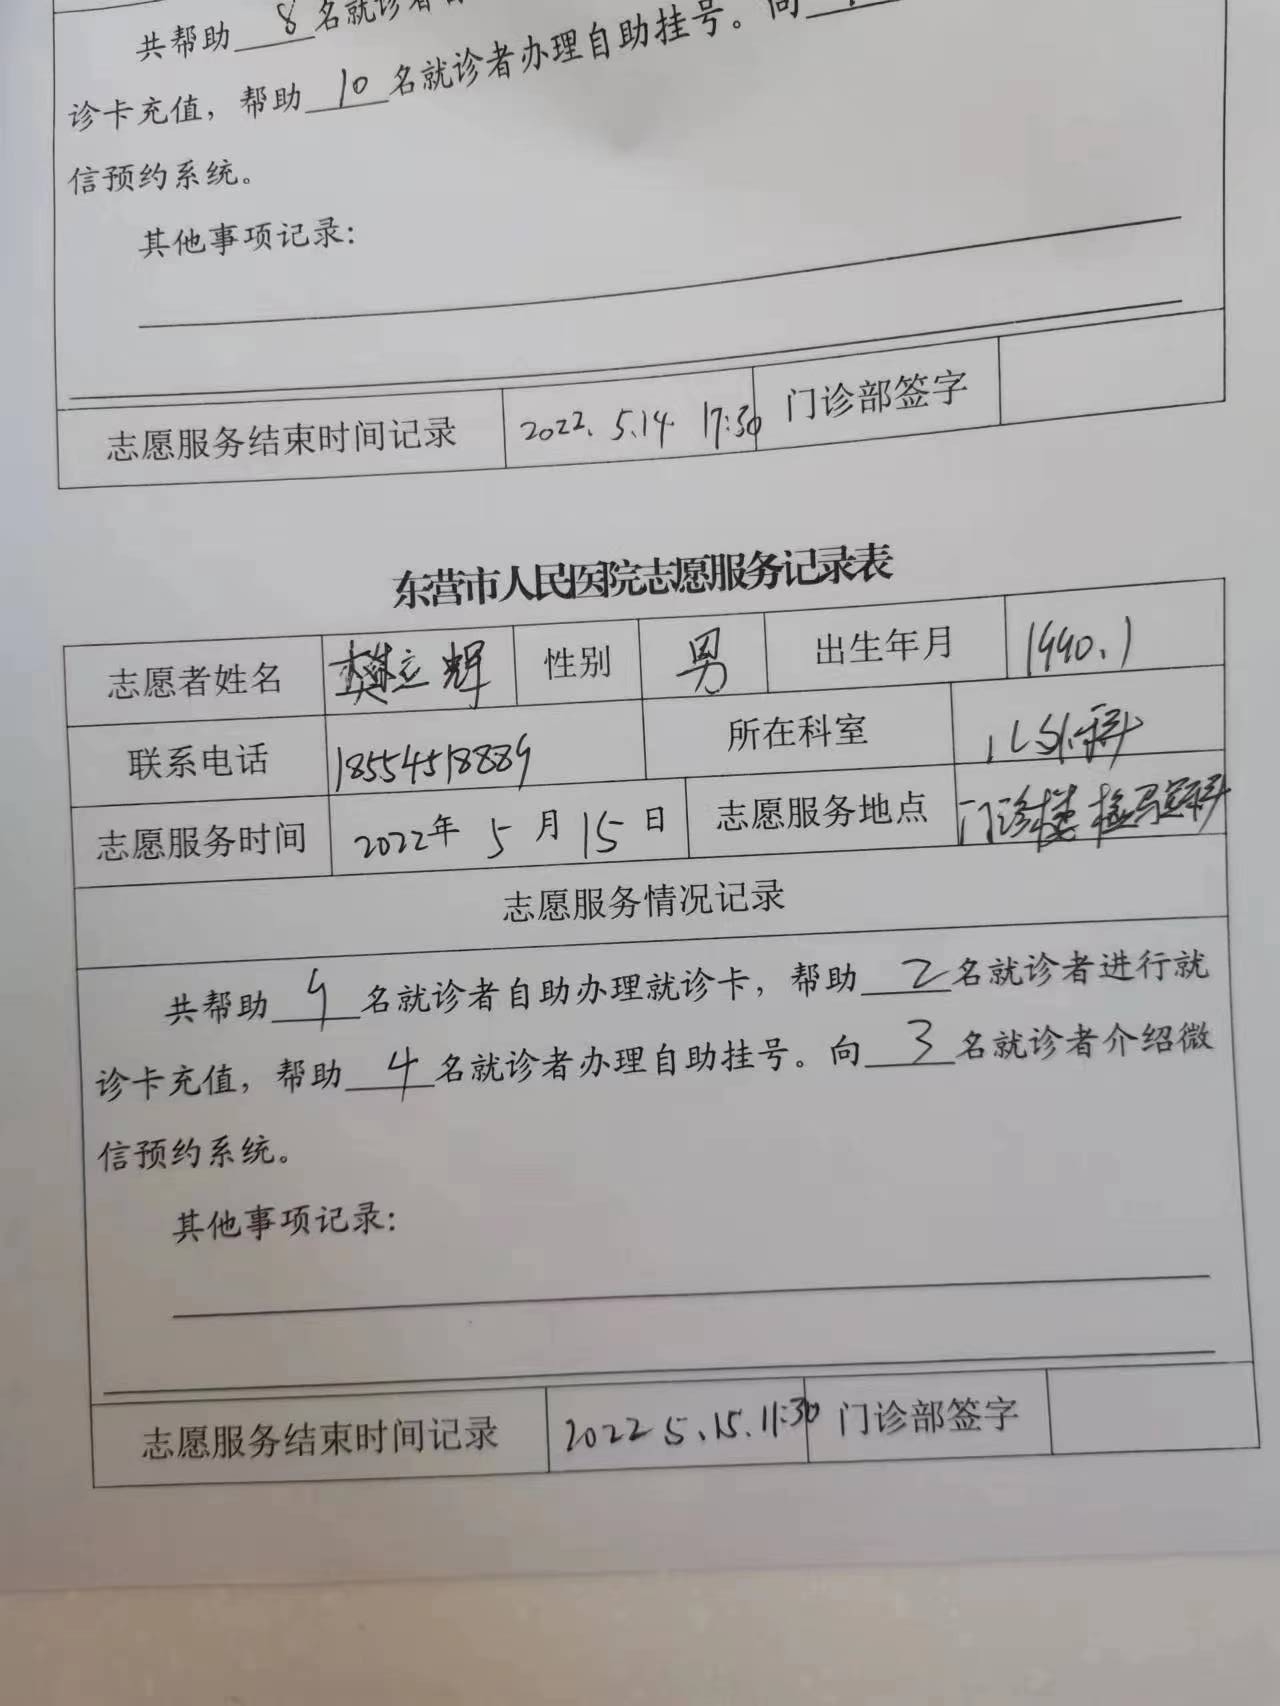 共帮助 8 名就诊者
诊卡充值，帮助 10 名就诊者办理自助挂号。向
信预约系统。
其他事项记录：
志愿服务结束时间记录 2022.5.14 17:30 门诊部签字
东营市人民医院志愿服务记录表
志愿者姓名 樊立辉 性别 男 出生年月 1990.1
联系电话 18554518889 所在科室 儿外科
志愿服务时间 2022年 5 月 15 日 志愿服务地点 门诊楼检验科
志愿服务情况记录
共帮助 4 名就诊者自助办理就诊卡，帮助 2 名就诊者进行就
诊卡充值，帮助 4 名就诊者办理自助挂号。向 3 名就诊者介绍微
信预约系统。
其他事项记录：
志愿服务结束时间记录 2022 5.15.11:30 门诊部签字